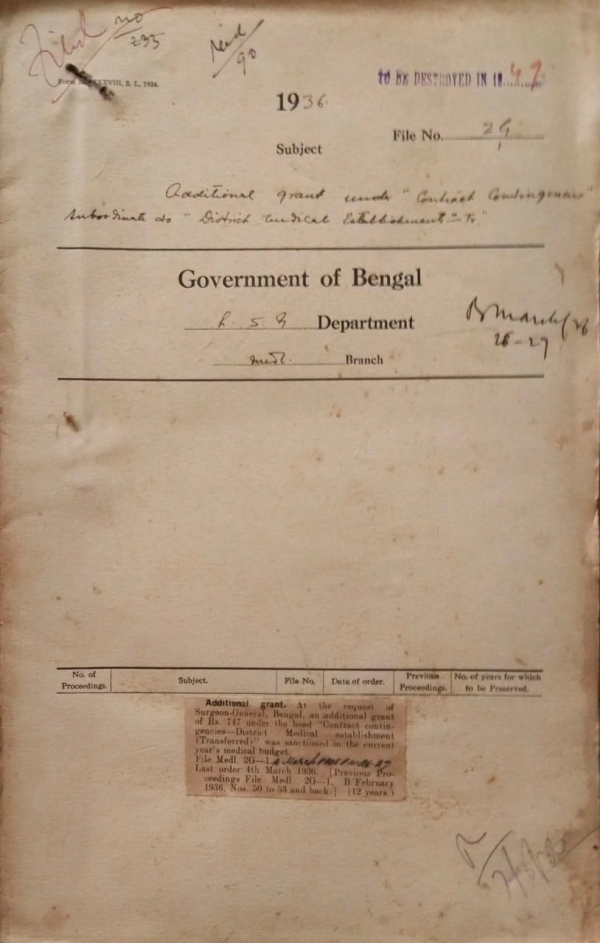 Filed no
235
90
XXXVIII, B. L., 1924.
TO BE DESTROYED IN 19 47
1936
File No. 2G
1
Subject
Additional grant under "Contract Contingencies"
subordinate to "District Medical Establishment - Tr"
Government of Bengal
L. S. G Department
B March/36
26-27
Medl. Branch
No. of Proceedings.
Subject.
File No.
Date of order.
Previous Proceedings.
No. of years for which to be Preserved.
Additional grant. At the request of
Surgeon-General, Bengal, an additional grant
of Rs. 747 under the head "Contract contin-
gencies—District Medical establishment
(Transferred)" was sanctioned in the current
year's medical budget.
File Medl. 2G—1. B March 27
Last order 4th March 1936. [Previous Pro-
ceedings File Medl. 2G—1. B February
1936, Nos. 50 to 53 and back.] (12 years.)